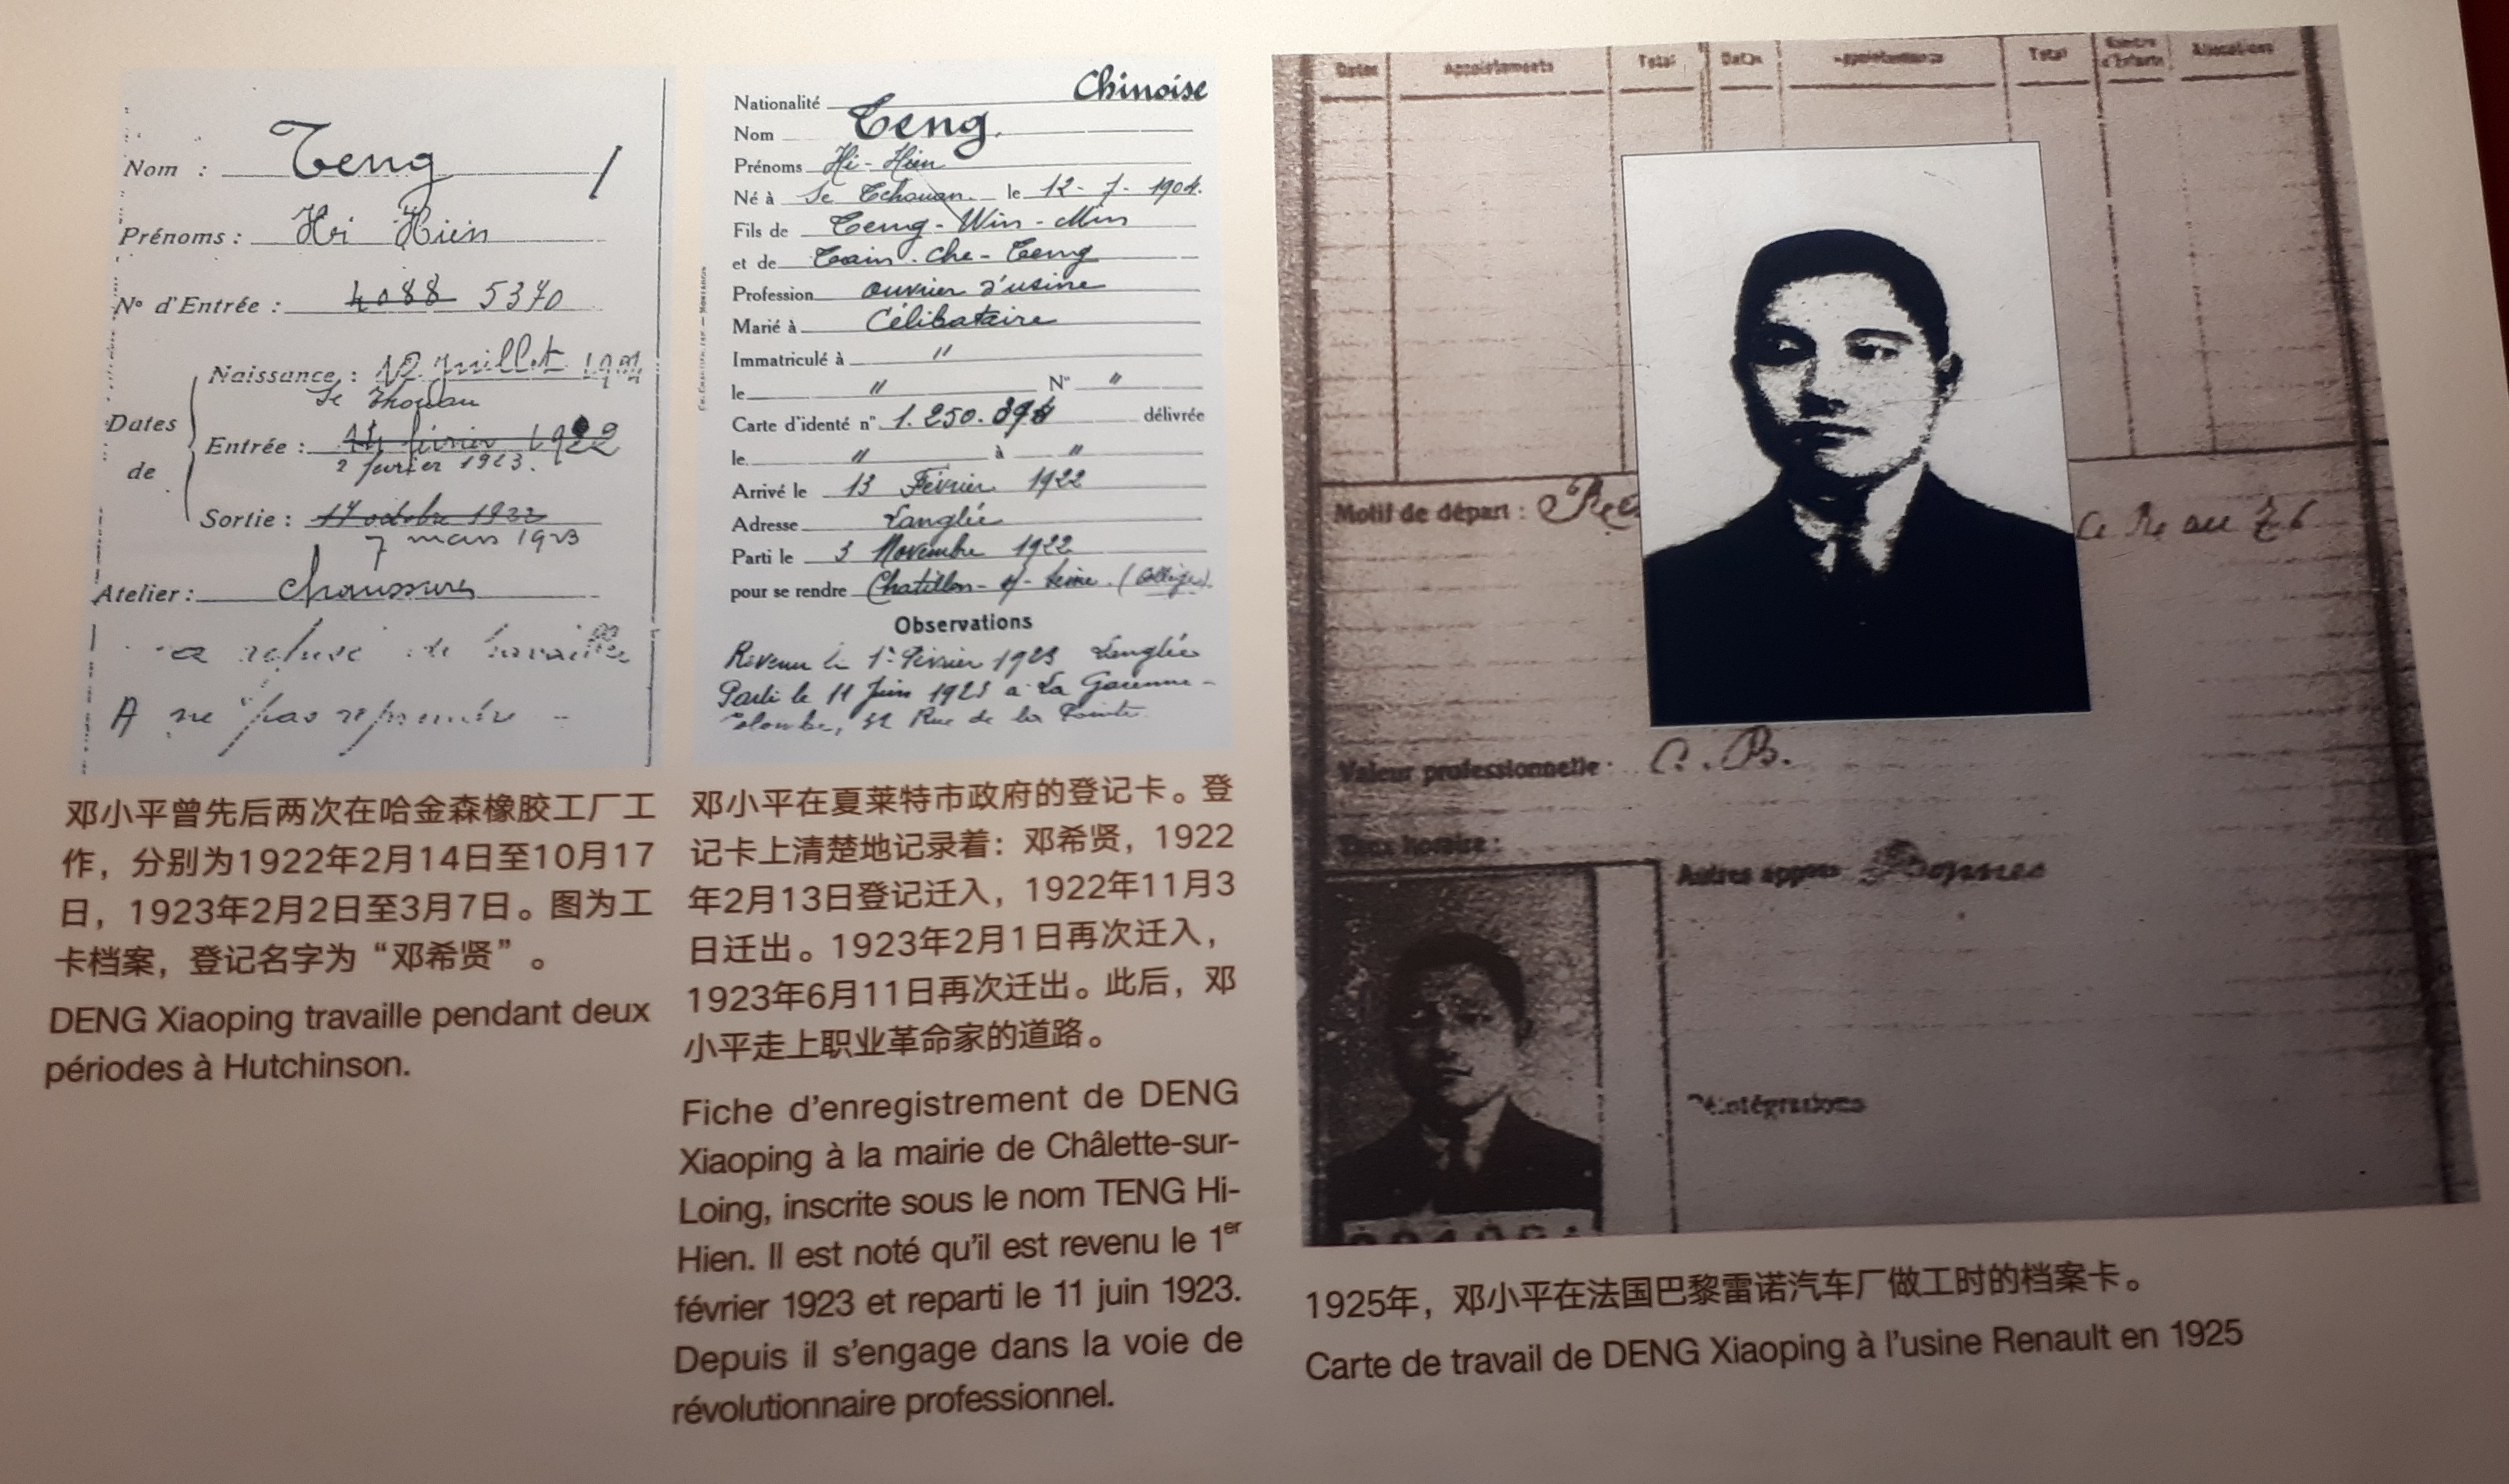 Nom : Teng /
Prénoms : Hi Hien
N° d'Entrée : 4088 5370
Dates de
Naissance : 12 Juillet 1904
Se Thouan
Entrée : 14 février 1922
2 fevrier 1923.
Sortie : 17 octobre 1922
7 mars 1923
Atelier : chaussures
a refusé de travailler
A ne pas reprendre -
邓小平曾先后两次在哈金森橡胶工厂工
作，分别为1922年2月14日至10月17
日，1923年2月2日至3月7日。图为工
卡档案，登记名字为“邓希贤”。
DENG Xiaoping travaille pendant deux
périodes à Hutchinson.
Nationalité Chinoise
Nom Teng.
Prénoms Hi-Hien
Né à Se Tchouan. le 12-7-1904.
Fils de Teng-Win-Min
et de Tain-Che-Teng
Profession ouvrier d'usine
Marié à Célibataire
Immatriculé à "
le " N° "
Carte d'identé n° 1.250.394 délivrée
le " à "
Arrivé le 13 Février 1922
Adresse Langlée
Parti le 3 Novembre 1922
pour se rendre Chatillon-s/-Seine. (Collège).
Observations
Revenu le 1er Février 1923 Langlée
Parti le 11 Juin 1923 a La Garenne-
Colombe, 32 Rue de la Pointe
邓小平在夏莱特市政府的登记卡。登
记卡上清楚地记录着：邓希贤，1922
年2月13日登记迁入，1922年11月3
日迁出。1923年2月1日再次迁入，
1923年6月11日再次迁出。此后，邓
小平走上职业革命家的道路。
Fiche d'enregistrement de DENG
Xiaoping à la mairie de Châlette-sur-
Loing, inscrite sous le nom TENG Hi-
Hien. Il est noté qu'il est revenu le 1er
février 1923 et reparti le 11 juin 1923.
Depuis il s'engage dans la voie de
révolutionnaire professionnel.
Dates Appointements Total Dates Appointements Total Nombre d'Enfants Allocations
Motif de départ :
Valeur professionnelle : C. B.
Taux horaire :
Autres appons
Réintégrations
1925年，邓小平在法国巴黎雷诺汽车厂做工时的档案卡。
Carte de travail de DENG Xiaoping à l'usine Renault en 1925